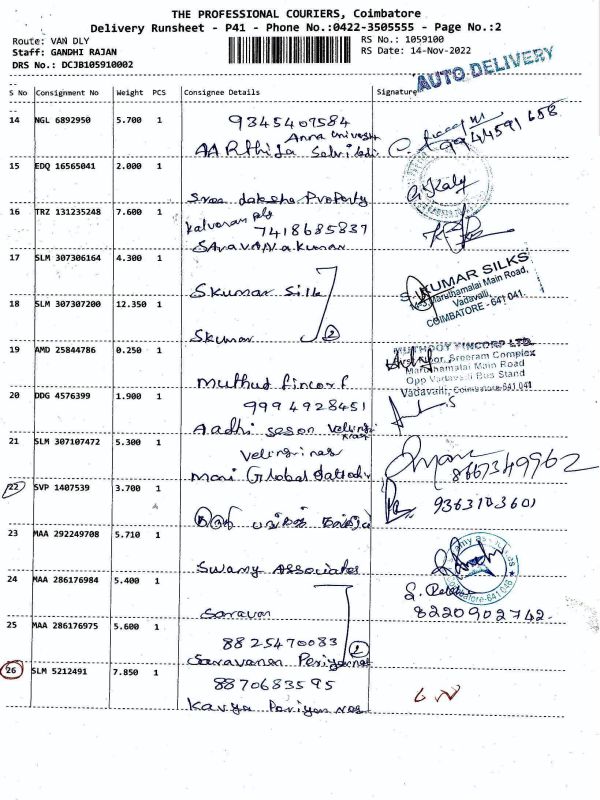 THE PROFESSIONAL COURIERS, Coimbatore
Delivery Runsheet - P41 - Phone No.:0422-3505555 - Page No.:2
Route: VAN DLY
RS No.: 1059100
Staff: GANDHI RAJAN
RS Date: 14-Nov-2022
DRS No.: DCJB105910002
AUTO DELIVERY
S No Consignment No Weight PCS Consignee Details Signature
14 NGL 6892950 5.700 1
9345407584
9944591658
15 EDQ 16565041 2.000 1
Sree daksha Property
16 TRZ 131235248 7.600 1
7418685837
Saravanakumar
17 SLM 307306164 4.300 1
Skumar Silk
S. KUMAR SILKS
Maruthamalai Main Road,
Vadavalli,
COIMBATORE - 641 041.
18 SLM 307307200 12.350 1
Skumar
2
19 AMD 25844786 0.250 1
MUTHOOT FINCORP LTD
Floor, Sreeram Complex
Maruthamalai Main Road
Opp Vadavalli Bus Stand
Vadavalli, Coimbatore-641 041
Muthut fincorf
20 DDG 4576399 1.900 1
9994928451
Aadhi
21 SLM 307107472 5.300 1
Mari Global
8667349962
22 SVP 1407539 3.700 1
9363103601
23 MAA 292249708 5.710 1
Swamy Associates
24 MAA 286176984 5.400 1
Saravan
8220902742.
25 MAA 286176975 5.600 1
8825470083
2
Saravanan
26 SLM 5212491 7.850 1
8870683595
Kavya